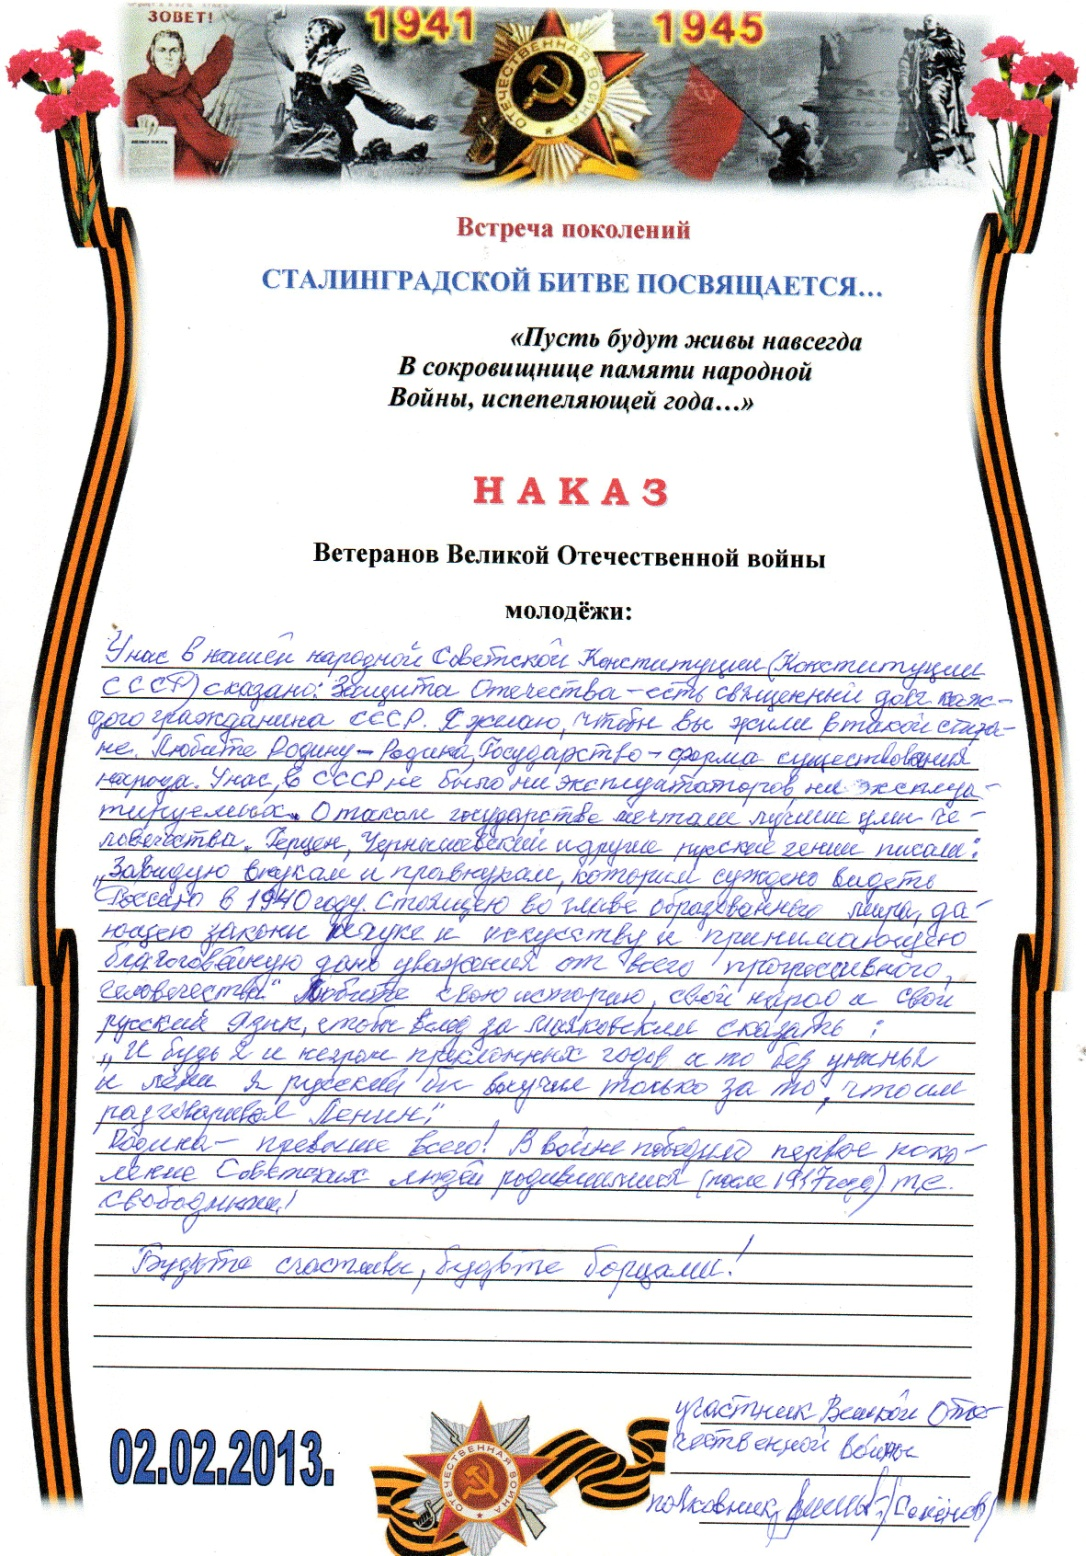 ЗОВЕТ!
1941 1945
ОТЕЧЕСТВЕННАЯ ВОЙНА
Встреча поколений
СТАЛИНГРАДСКОЙ БИТВЕ ПОСВЯЩАЕТСЯ...
«Пусть будут живы навсегда
В сокровищнице памяти народной
Войны, испепеляющей года...»
НАКАЗ
Ветеранов Великой Отечественной войны
молодёжи:
У нас в нашей народной Советской Конституции (Конституции
СССР) сказано: Защита Отечества – есть священный долг каж-
дого гражданина СССР. Я желаю, чтобы вы жили в такой стра-
не. Любите Родину – Родина, Государство – форма существования
народа. У нас, в СССР не было ни эксплуататоров, ни эксплуа-
тируемых. О таком государстве мечтали лучшие умы че-
ловечества. Герцен, Чернышевский и другие русские гении писали:
„Завидую внукам и правнукам, которым суждено видеть
Россию в 1940 году. Стоящею во главе образованного мира, да-
ющею законы науке и искусству и принимающею
благоговейную дань уважения от всего прогрессивного
человечества." Любите свою историю, свой народ и свой
русский язык, чтобы вслед за Маяковским сказать:
„И будь я и негром преклонных годов и то без унынья
и лени я русский бы выучил только за то, что им
разговаривал Ленин"
Родина – превыше всего! В войне победило первое поко-
ление Советских людей родившихся (после 1917 года) т.е.
свободными!
Будьте счастливы, будьте борцами!
02.02.2013.
ОТЕЧЕСТВЕННАЯ ВОЙНА
участник Великой Оте-
чественной войны
полковник (Семёнов)